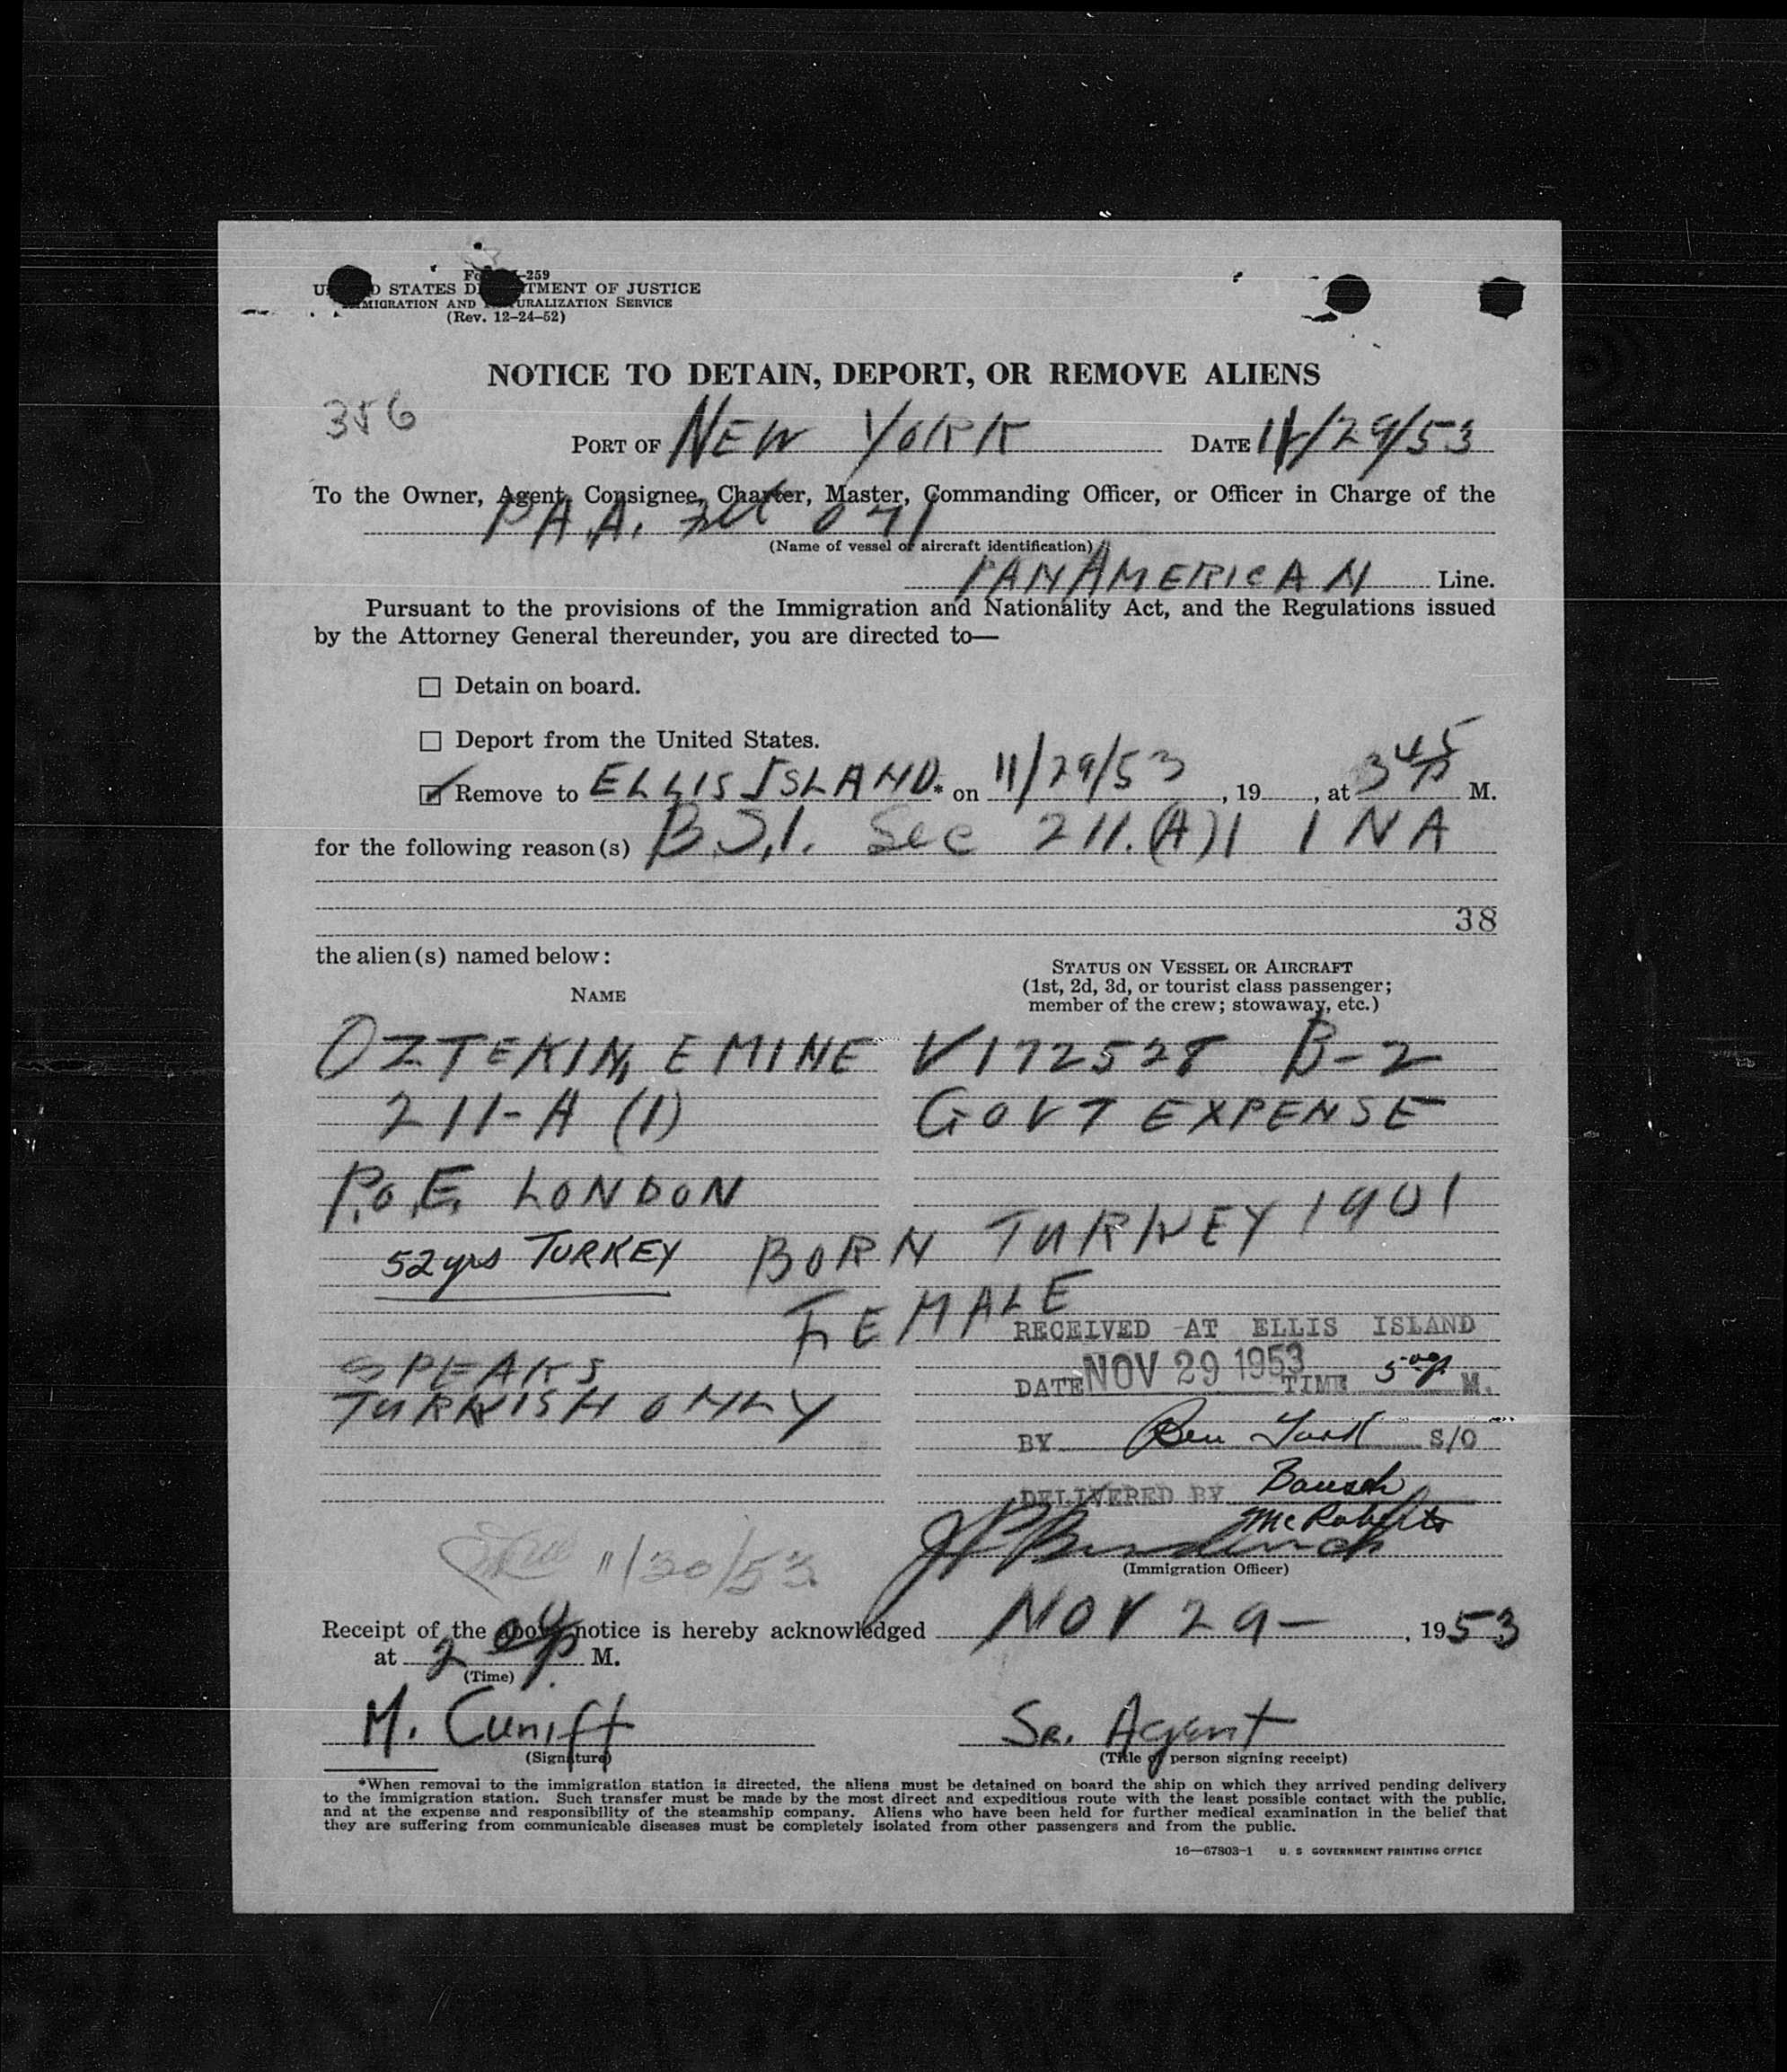 Fo -259
U D STATES D TMENT OF JUSTICE
MIGRATION AND URALIZATION SERVICE
(Rev. 12-24-52)
NOTICE TO DETAIN, DEPORT, OR REMOVE ALIENS
356
PORT OF NEW YORK DATE 11/29/53
To the Owner, Agent, Consignee, Charter, Master, Commanding Officer, or Officer in Charge of the
P.A.A. Flt 071
(Name of vessel or aircraft identification)
PANAMERICAN Line.
Pursuant to the provisions of the Immigration and Nationality Act, and the Regulations issued
by the Attorney General thereunder, you are directed to—
☐ Detain on board.
☐ Deport from the United States.
☑ Remove to ELLIS ISLAND.* on 11/29/53, 19 , at 3 45 P M.
for the following reason(s) B.S.I. Sec 211.(A)1 INA
38
the alien(s) named below:
STATUS ON VESSEL OR AIRCRAFT
NAME
(1st, 2d, 3d, or tourist class passenger;
member of the crew; stowaway, etc.)
OZTEKIN, EMINE V172528 B-2
211-A (1) GOVT EXPENSE
P.O.E. LONDON
52 yrs TURKEY BORN TURKEY 1901
FEMALE
RECEIVED AT ELLIS ISLAND
SPEAKS
DATE NOV 29 1953 TIME 5 00 P M.
TURKISH ONLY
BY Ben S/O
DELIVERED BY Bausch
McRoberts
(Immigration Officer)
11/30/53
Receipt of the above notice is hereby acknowledged NOV 29-, 1953
at 2 P M.
(Time)
M. Cuniff Sr. Agent
(Signature) (Title of person signing receipt)
*When removal to the immigration station is directed, the aliens must be detained on board the ship on which they arrived pending delivery
to the immigration station. Such transfer must be made by the most direct and expeditious route with the least possible contact with the public,
and at the expense and responsibility of the steamship company. Aliens who have been held for further medical examination in the belief that
they are suffering from communicable diseases must be completely isolated from other passengers and from the public.
16—67803-1 U. S GOVERNMENT PRINTING OFFICE